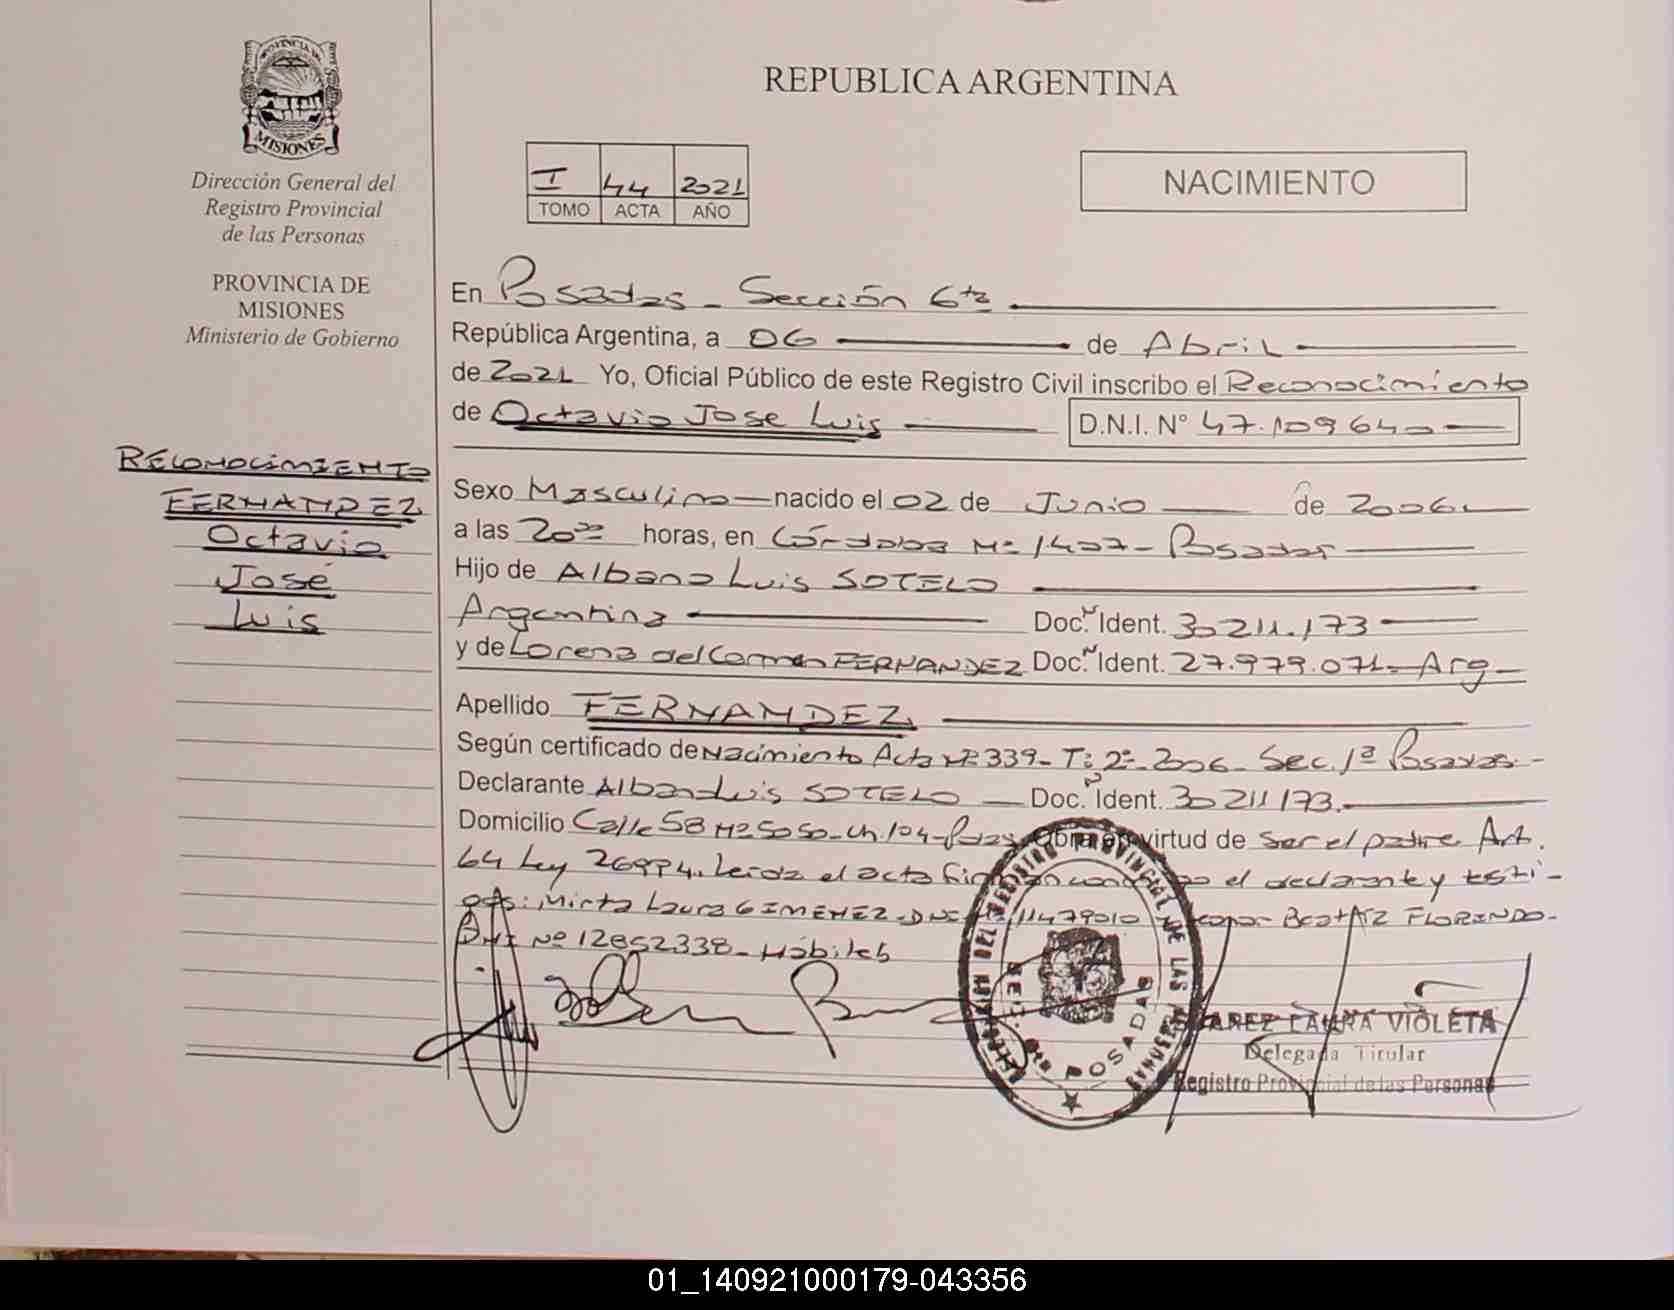 PROVINCIA DE
MISIONES
Dirección General del
Registro Provincial
de las Personas
PROVINCIA DE
MISIONES
Ministerio de Gobierno
RECONOCIMIENTO
FERNANDEZ
Octavio
José
Luis
REPUBLICA ARGENTINA
I 44 2021
TOMO ACTA AÑO
NACIMIENTO
En Posadas - Sección 6ta
República Argentina, a 06 de Abril
de 2021 Yo, Oficial Público de este Registro Civil inscribo el Reconocimiento
de Octavio Jose Luis D.N.I. N° 47.109640
Sexo Masculino nacido el 02 de Junio de 2006
a las 20 00 horas, en Córdoba Nº 1407 - Posadas
Hijo de Albano Luis SOTELO
Argentina Doc. Ident. 30211.173
y de Lorena del Carmen FERNANDEZ Doc. Ident. 27.979.071 - Arg
Apellido FERNANDEZ
Según certificado de Nacimiento Acta Nº 339 - T: 2º - 2006 - Sec. 1ª Posadas -
Declarante Albano Luis SOTELO Doc. Ident. 30211173.
Domicilio Calle 58 Nº 5050 - Ch. 104 - Pdas Obra en virtud de ser el padre Art.
64 Ley 26994. Leida el acta firman conmigo el declarante y testi-
gos: Mirta Laura GIMENEZ - DNI Nº 11479010 Beatriz FLORINDO -
DNI Nº 12852338 - Hábiles
DELEGACION DEL REGISTRO PROVINCIAL DE LAS PERSONAS
SECC. 6ta POSADAS
LAURA VIOLETA
Delegada Titular
Registro Provincial de las Personas
01_140921000179-043356